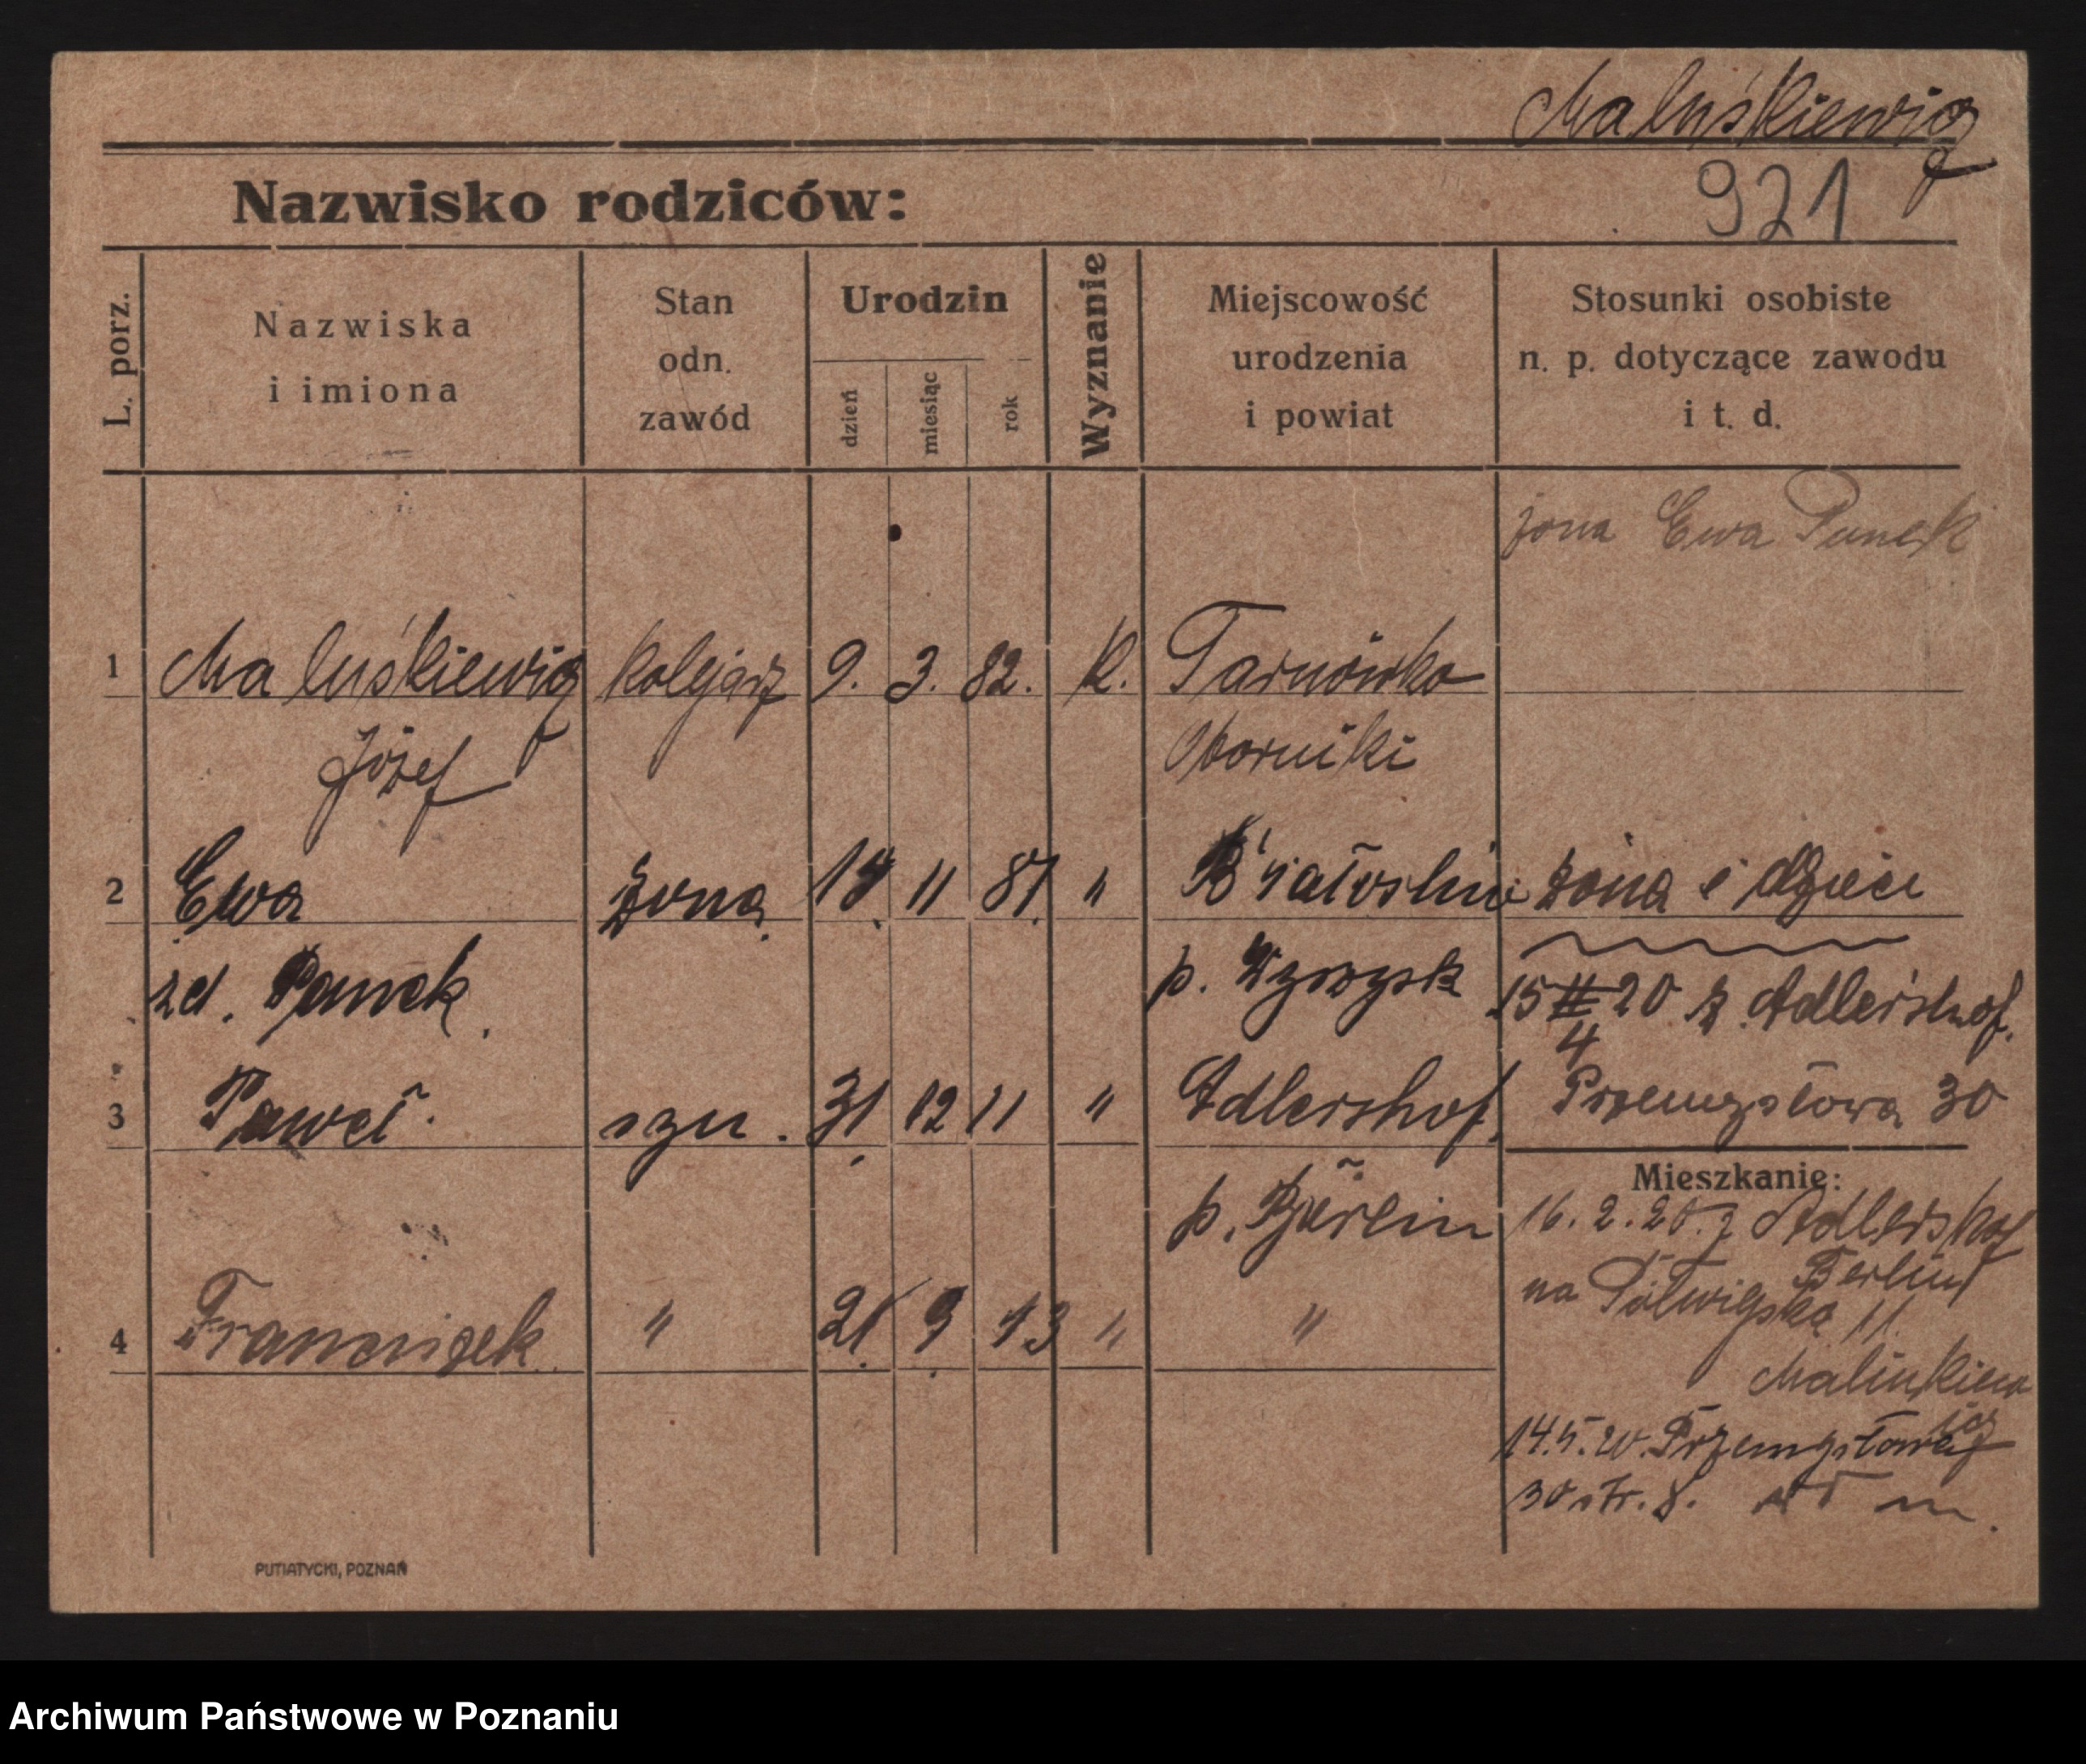 Maluśkiewicz
921
Nazwisko rodziców:
L. porz.
Nazwiska
i imiona
Stan
odn.
zawód
Urodzin
dzień
miesiąc
rok
Wyznanie
Miejscowość
urodzenia
i powiat
Stosunki osobiste
n. p. dotyczące zawodu
i t. d.
żona Ewa Panek
1 Maluśkiewicz kolejarz 9. 3. 82. k. Tarnówko
Józef Oborniki
2 Ewa żona 11 87 " żona i dzieci
zd. Panek p. Wyrzysk 15 II 20 z Adlershof.
4
3 Paweł syn. 31 12 11 " Adlershof Przemysłowa 30
p. Berlin
Mieszkanie:
16. 2. 20. z Adlershof
Berlin
na 11
4 Franciszek " 21 9 13 " "
14.5.20. Przemysłowa
30 str. 8.
PUTIATYCKI, POZNAŃ
Archiwum Państwowe w Poznaniu